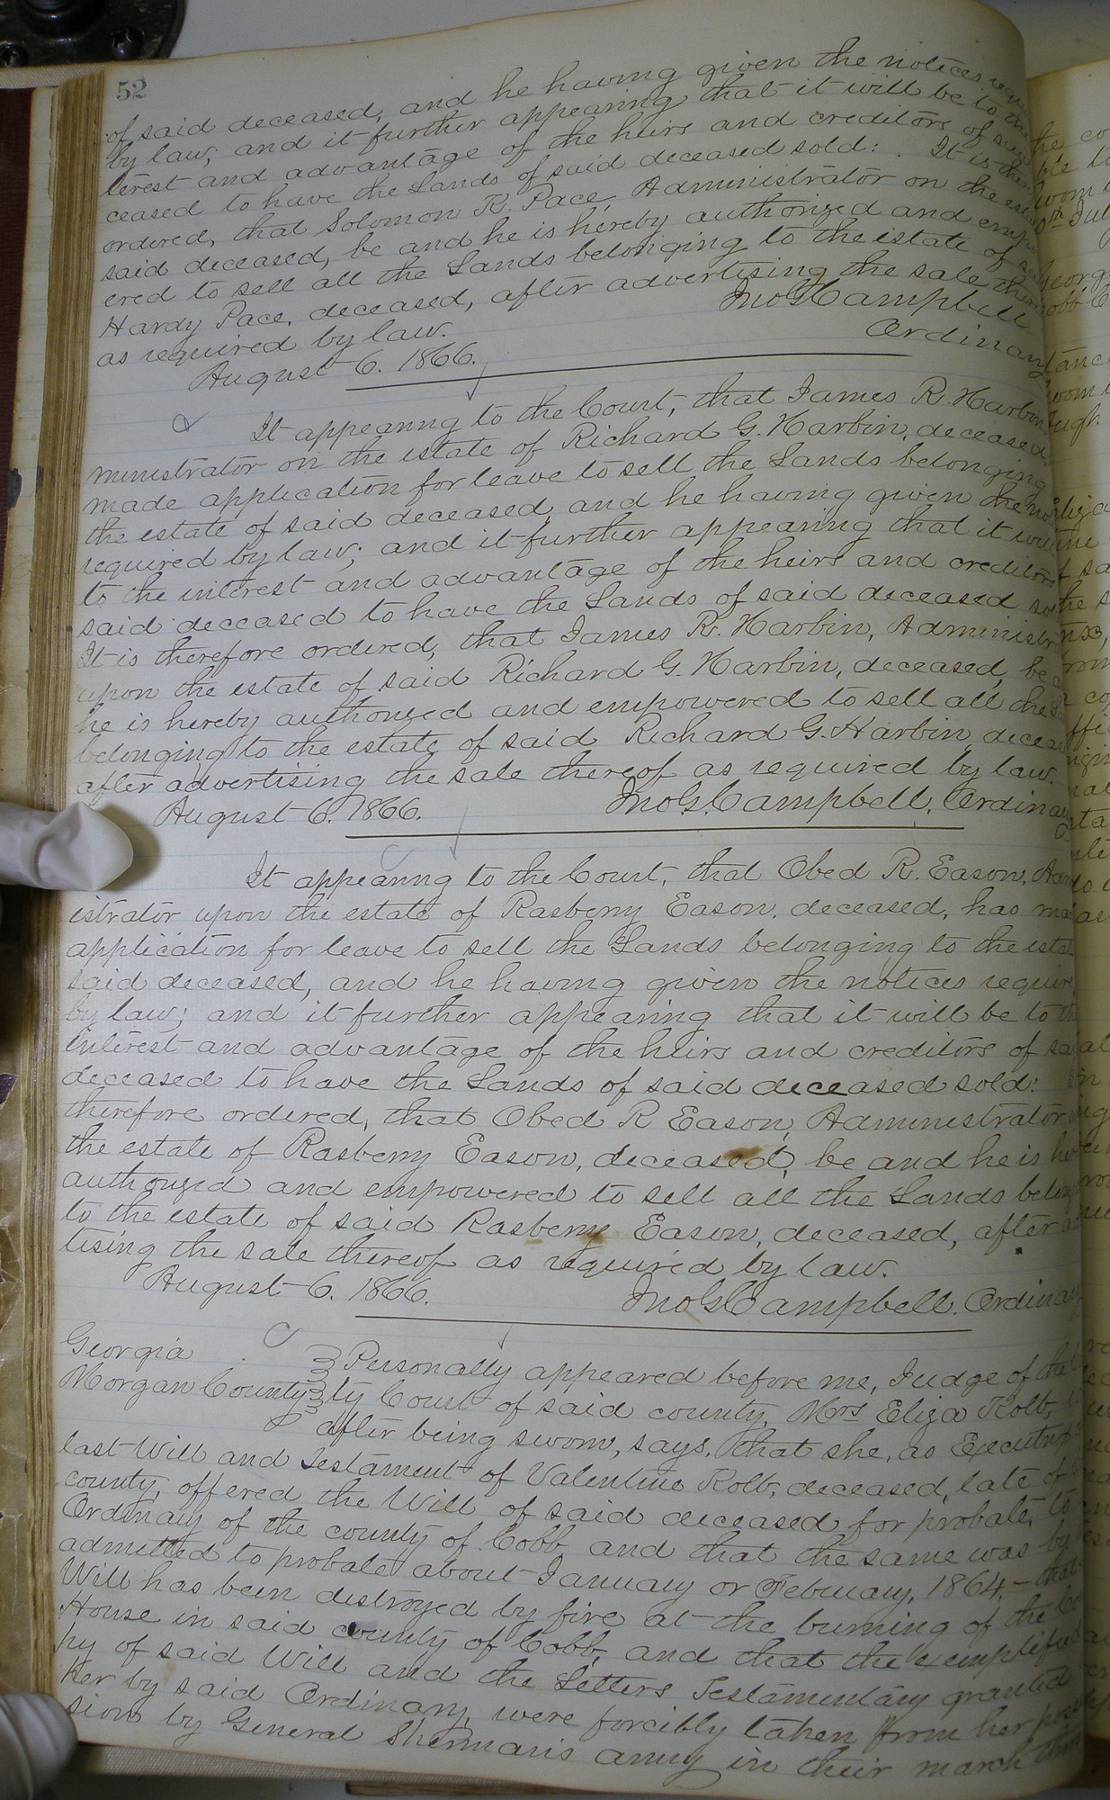 52
of said deceased, and he having given the notices
by law, and it further appearing that it will be to the
terest and advantage of the heirs and creditors of
ceased to have the Lands of said deceased sold: It is
ordered, that Solomon R. Pace, Administrator on the
said deceased, be and he is hereby authorized and emp
ered to sell all the Lands belonging to the estate of
Hardy Pace, deceased, after advertising the sale
as required by law.
Jno G. Campbell
August 6. 1866.
Ordinary
It appearing to the Court, that James R. Harbin
ministrator on the estate of Richard G. Harbin, deceased,
made application for leave to sell the Lands belonging
the estate of said deceased, and he having given the no
required by law; and it further appearing that it
to the interest and advantage of the heirs and creditors
said deceased to have the Lands of said deceased
It is therefore ordered, that James R. Harbin, Administr
upon the estate of said Richard G. Harbin, deceased, be
he is hereby authorized and empowered to sell all the
belonging to the estate of said Richard G. Harbin, decea
after advertising the sale thereof as required by law.
August 6. 1866. Jno G. Campbell, Ordinary
It appearing to the Court, that Obed R. Eason,
istrator upon the estate of Rasberry Eason, deceased, has
application for leave to sell the Lands belonging to the
said deceased, and he having given the notices requir
by law; and it further appearing that it will be to
interest and advantage of the heirs and creditors of
deceased to have the Lands of said deceased sold:
therefore ordered, that Obed R Eason, Administrator
the estate of Rasberry Eason, deceased, be and he is
authorized and empowered to sell all the Lands
to the estate of said Rasberry Eason, deceased, after
tising the sale thereof as required by law.
August 6. 1866. Jno G Campbell. Ordinary
Georgia
Morgan County
Personally appeared before me, Judge of the
ty Court of said county, Mrs Eliza Kolb,
after being sworn, says, that she, as Executrix
last Will and Testament of Valentine Kolb, deceased, late of
county, offered the Will of said deceased for probate, to
Ordinary of the county of Cobb, and that the same was by
admitted to probate about January or February, 1864,— that
Will has been destroyed by fire at the burning of the
House in said county of Cobb, and that the exemplified
py of said Will and the Letters Testamentary granted
her by said Ordinary, were forcibly taken from her
sion by General Sherman's army in their march